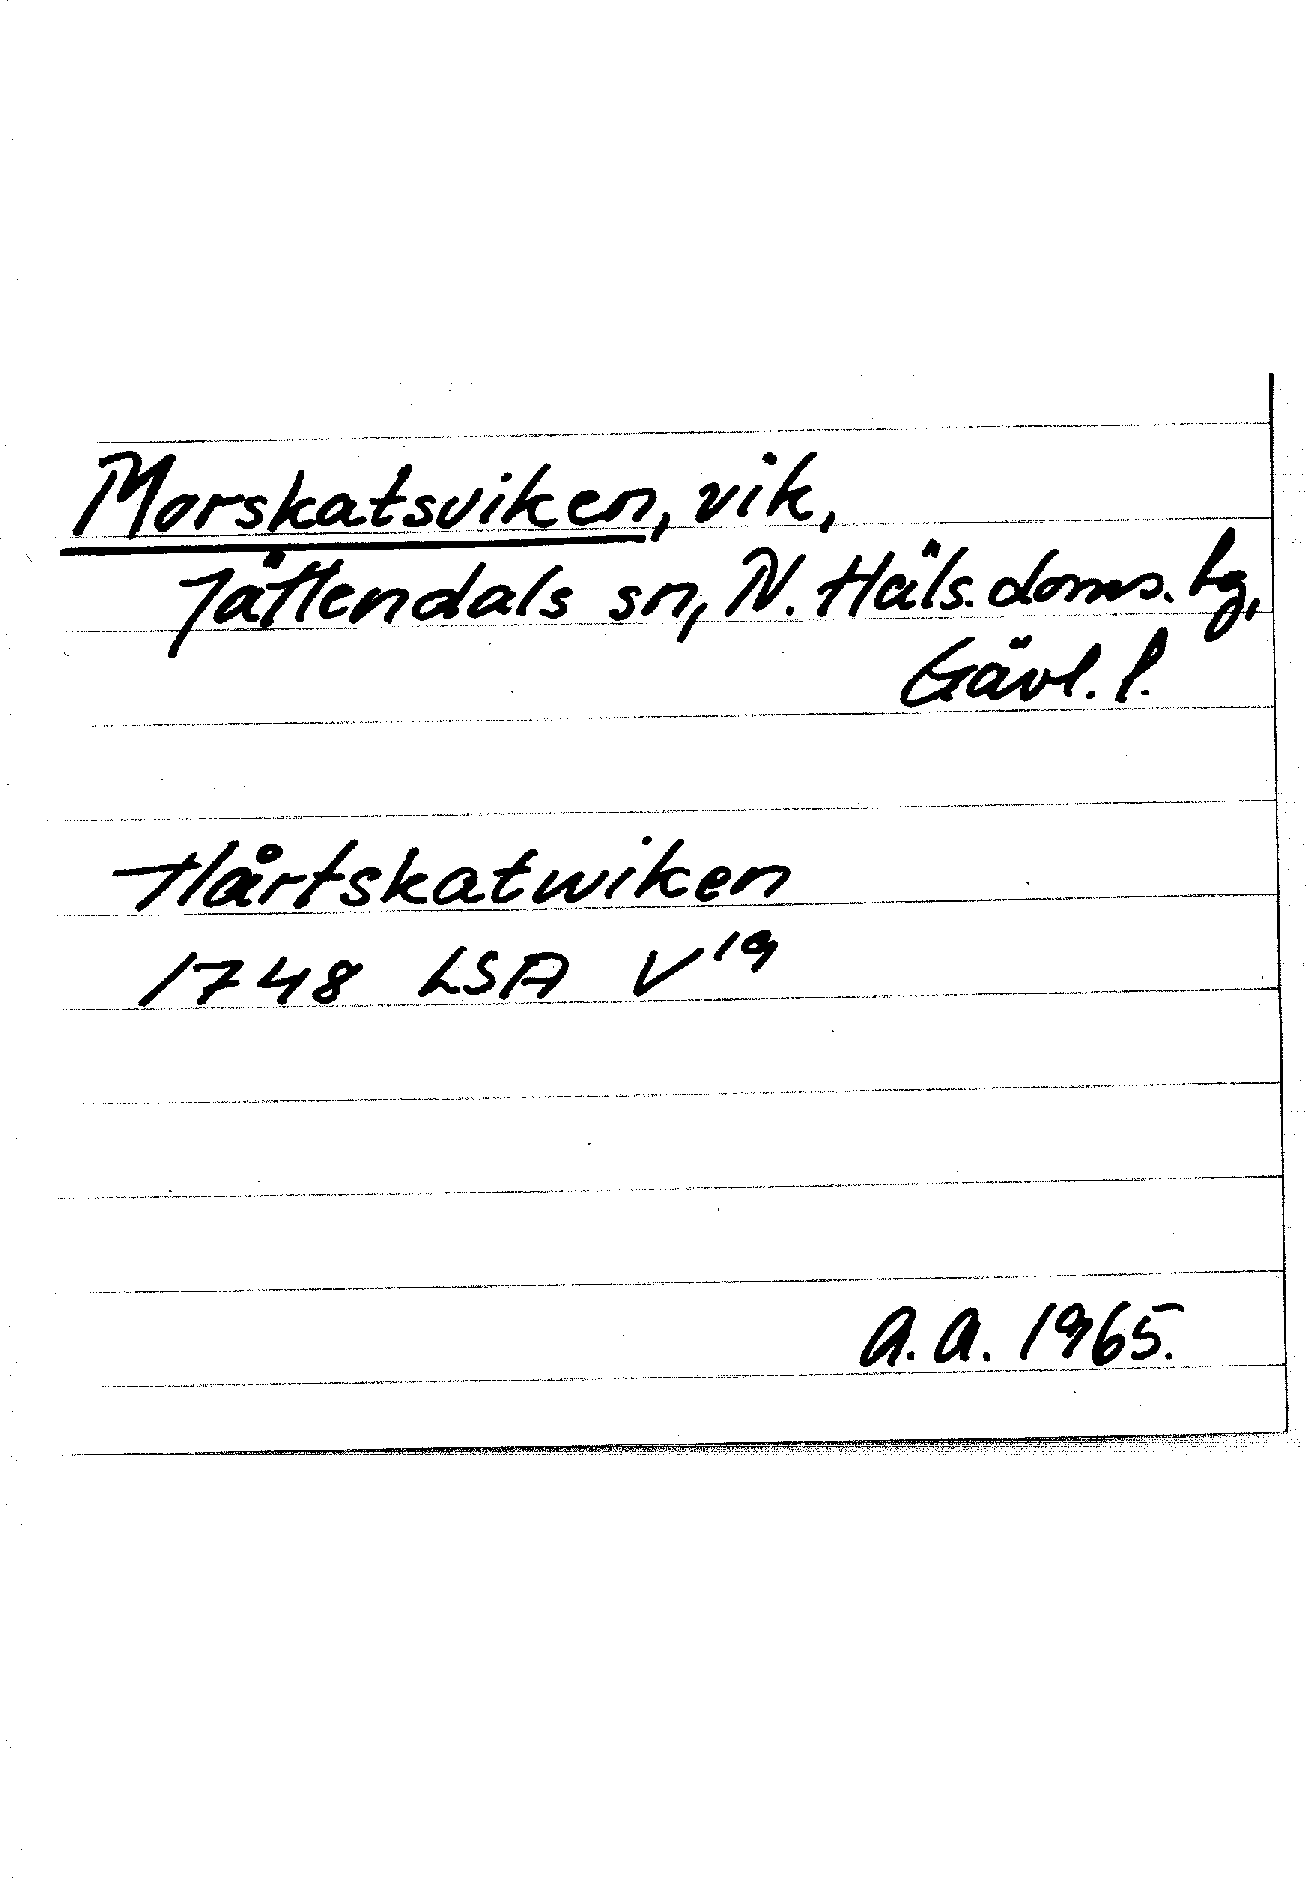 Morskatsviken, vik,
Jättendals sn, N. Häls. doms. hg,
Gävl. l.
Hårtskatwiken
1748 LSA V¹⁹
A. A. 1965.